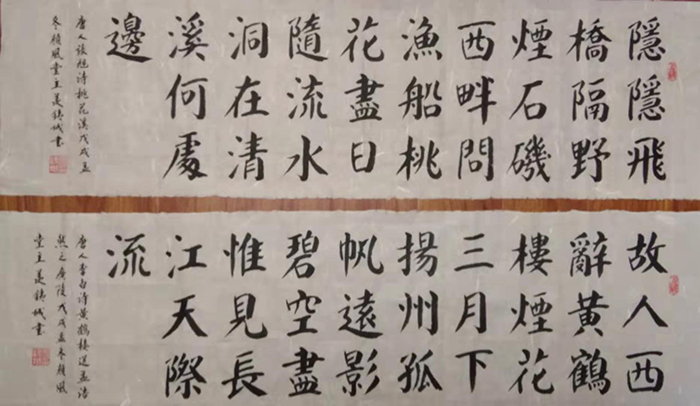 隱隱飛
橋隔野
煙石磯
西畔問
漁船桃
花盡日
隨流水
洞在清
溪何處
邊
唐人張旭诗桃花溪戊戌孟
冬風堂主铸城書
故人西
辭黃鶴
樓煙花
三月下
揚州孤
帆遠影
碧空盡
惟見長
江天際
流
唐人李白诗黃鶴樓送孟浩
然之廣陵戊戌孟冬風
堂主铸城書